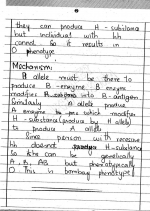 they can produce H - substance
but individual with hh
cannot. So it results in
O phenotype.
Mechanism:
A allele must be there to
produce B - enzyme. B enzyme
modifies into B - antigen.
Similarly A allele produce
A enzyme which modifies
H - substance (produce by H allele)
to produce A allele
Since person with recessive
hh doesn't H - substance
So s/he can be genetically
A, B, AB but phenotypically
O. This is bombay phenotype